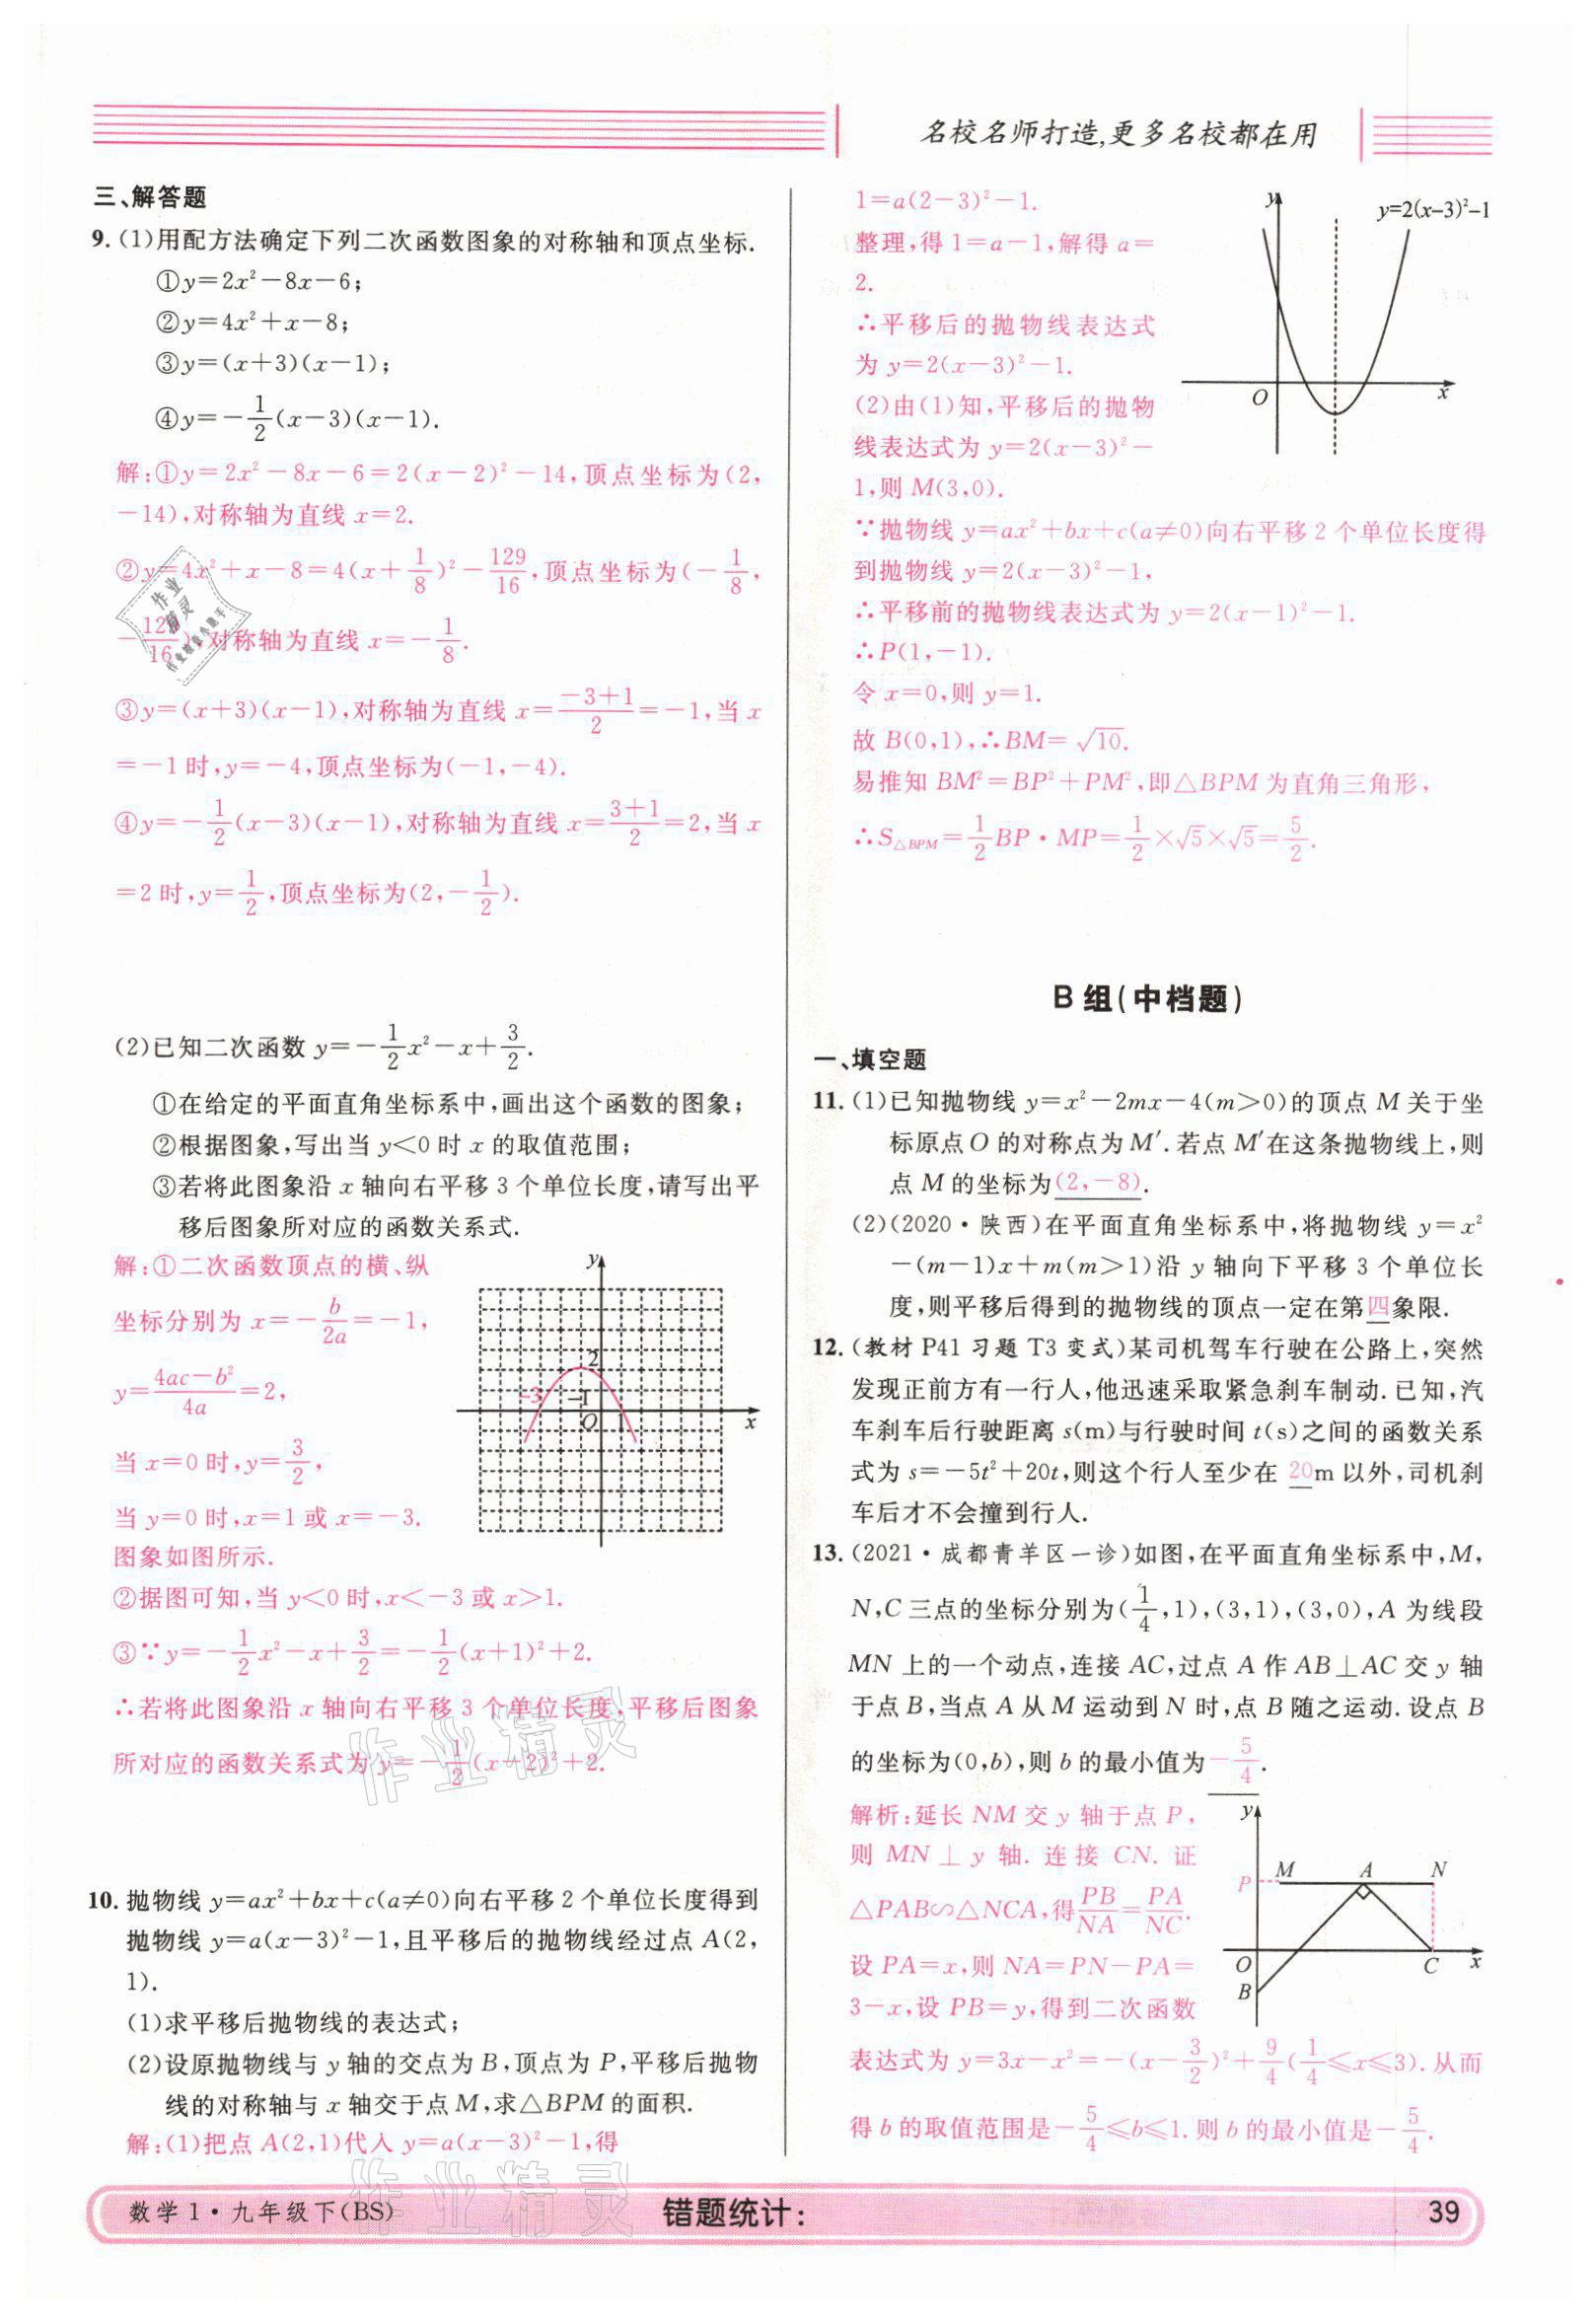 名校名师打造,更多名校都在用
三、解答题
9.(1)用配方法确定下列二次函数图象的对称轴和顶点坐标.
①y=2x²-8x-6;
②y=4x²+x-8;
③y=(x+3)(x-1);
④y=-1/2(x-3)(x-1).
解:①y=2x²-8x-6=2(x-2)²-14,顶点坐标为(2,
-14),对称轴为直线 x=2.
②y=4x²+x-8=4(x+1/8)²-129/16,顶点坐标为(-1/8,
-129/16),对称轴为直线 x=-1/8.
③y=(x+3)(x-1),对称轴为直线 x=(-3+1)/2=-1,当 x
=-1时,y=-4,顶点坐标为(-1,-4).
④y=-1/2(x-3)(x-1),对称轴为直线 x=(3+1)/2=2,当 x
=2时,y=1/2,顶点坐标为(2,-1/2).
(2)已知二次函数 y=-1/2x²-x+3/2.
①在给定的平面直角坐标系中,画出这个函数的图象;
②根据图象,写出当 y<0 时 x 的取值范围;
③若将此图象沿 x 轴向右平移 3 个单位长度,请写出平
移后图象所对应的函数关系式.
解:①二次函数顶点的横、纵
坐标分别为 x=-b/2a=-1,
y=(4ac-b²)/4a=2,
当 x=0 时,y=3/2,
当 y=0 时,x=1 或 x=-3.
图象如图所示.
y
2
-3
-1
O
1
x
②据图可知,当 y<0 时,x<-3 或 x>1.
③∵y=-1/2x²-x+3/2=-1/2(x+1)²+2.
∴若将此图象沿 x 轴向右平移 3 个单位长度,平移后图象
所对应的函数关系式为 y=-1/2(x-2)²+2.
10.抛物线 y=ax²+bx+c(a≠0)向右平移 2 个单位长度得到
抛物线 y=a(x-3)²-1,且平移后的抛物线经过点 A(2,
1).
(1)求平移后抛物线的表达式;
(2)设原抛物线与 y 轴的交点为 B,顶点为 P,平移后抛物
线的对称轴与 x 轴交于点 M,求△BPM 的面积.
解:(1)把点 A(2,1)代入 y=a(x-3)²-1,得
1=a(2-3)²-1.
整理,得 1=a-1,解得 a=
2.
∴平移后的抛物线表达式
为 y=2(x-3)²-1.
(2)由(1)知,平移后的抛物
线表达式为 y=2(x-3)²-
1,则 M(3,0).
y
y=2(x-3)²-1
O
x
∵抛物线 y=ax²+bx+c(a≠0)向右平移 2 个单位长度得
到抛物线 y=2(x-3)²-1,
∴平移前的抛物线表达式为 y=2(x-1)²-1.
∴P(1,-1).
令 x=0,则 y=1.
故 B(0,1),∴BM=√10.
易推知 BM²=BP²+PM²,即△BPM 为直角三角形,
∴S△BPM=1/2BP·MP=1/2×√5×√5=5/2.
B 组(中档题)
一、填空题
11.(1)已知抛物线 y=x²-2mx-4(m>0)的顶点 M 关于坐
标原点 O 的对称点为 M′.若点 M′在这条抛物线上,则
点 M 的坐标为(2,-8).
(2)(2020·陕西)在平面直角坐标系中,将抛物线 y=x²
-(m-1)x+m(m>1)沿 y 轴向下平移 3 个单位长
度,则平移后得到的抛物线的顶点一定在第四象限.
12.(教材 P41 习题 T3 变式)某司机驾车行驶在公路上,突然
发现正前方有一行人,他迅速采取紧急刹车制动.已知,汽
车刹车后行驶距离 s(m)与行驶时间 t(s)之间的函数关系
式为 s=-5t²+20t,则这个行人至少在 20m 以外,司机刹
车后才不会撞到行人.
13.(2021·成都青羊区一诊)如图,在平面直角坐标系中,M,
N,C 三点的坐标分别为(1/4,1),(3,1),(3,0),A 为线段
MN 上的一个动点,连接 AC,过点 A 作 AB⊥AC 交 y 轴
于点 B,当点 A 从 M 运动到 N 时,点 B 随之运动.设点 B
的坐标为(0,b),则 b 的最小值为-5/4.
解析:延长 NM 交 y 轴于点 P,
则 MN⊥y 轴.连接 CN.证
△PAB∽△NCA,得PB/NA=PA/NC.
设 PA=x,则 NA=PN-PA=
3-x,设 PB=y,得到二次函数
y
P
M
A
N
O
C
x
B
表达式为 y=3x-x²=-(x-3/2)²+9/4(1/4≤x≤3).从而
得 b 的取值范围是-5/4≤b≤1.则 b 的最小值是-5/4.
作业精灵
作业精灵
数学1·九年级下(BS)
错题统计:
39